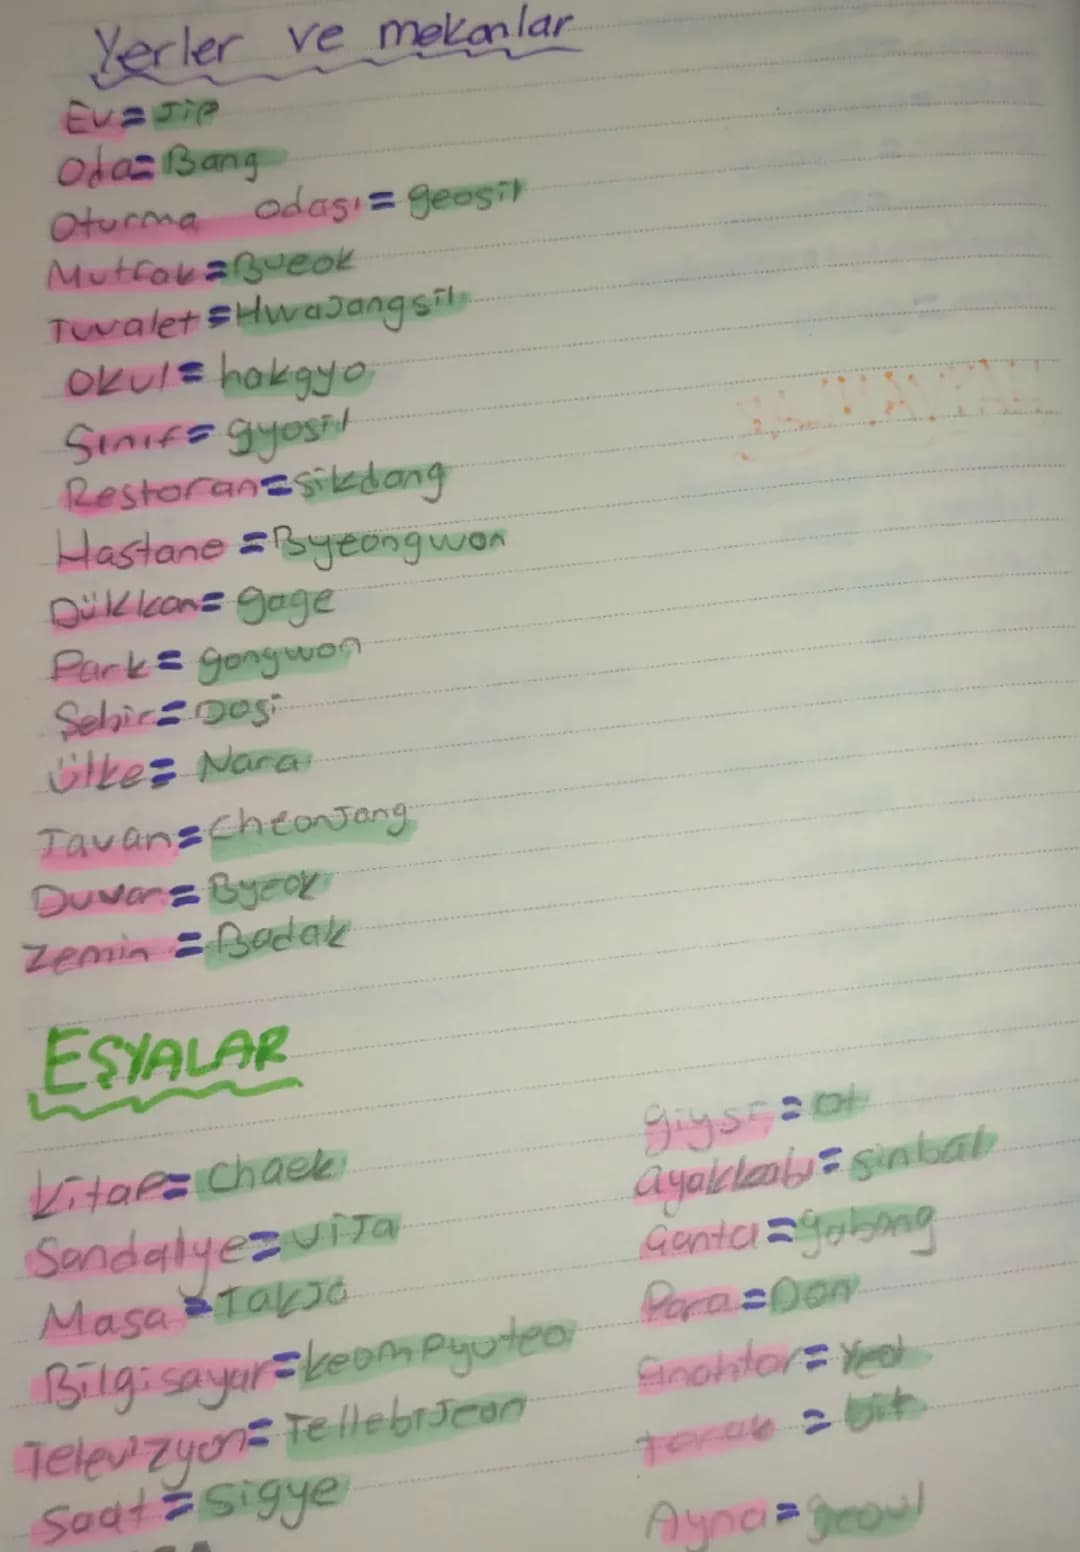 Yerler ve mekanlar
Ev = Jip
Oda = Bang
Oturma odası = geosil
Mutfak = Bueok
Tuvalet = HwaJangsil
Okul = hakgyo
Sınıf = gyosil
Restoran = sikdang
Hastane = Byeongwon
Dükkan = gage
Park = gongwon
Şehir = Dosi
Ülke = Nara
Tavan = CheonJang
Duvar = Byeok
Zemin = Badak
EŞYALAR
Kitap = Chaek
Sandalye = UiJa
Masa = TakJa
Bilgisayar = keompyuteo
Televizyon = TellebiJeon
Saat = Sigye
giysi = ot
ayakkabı = sinbal
Çanta = gabang
Para = Don
Anahtar =
tarak = bit
Ayna = geoul
HAYVANLAR